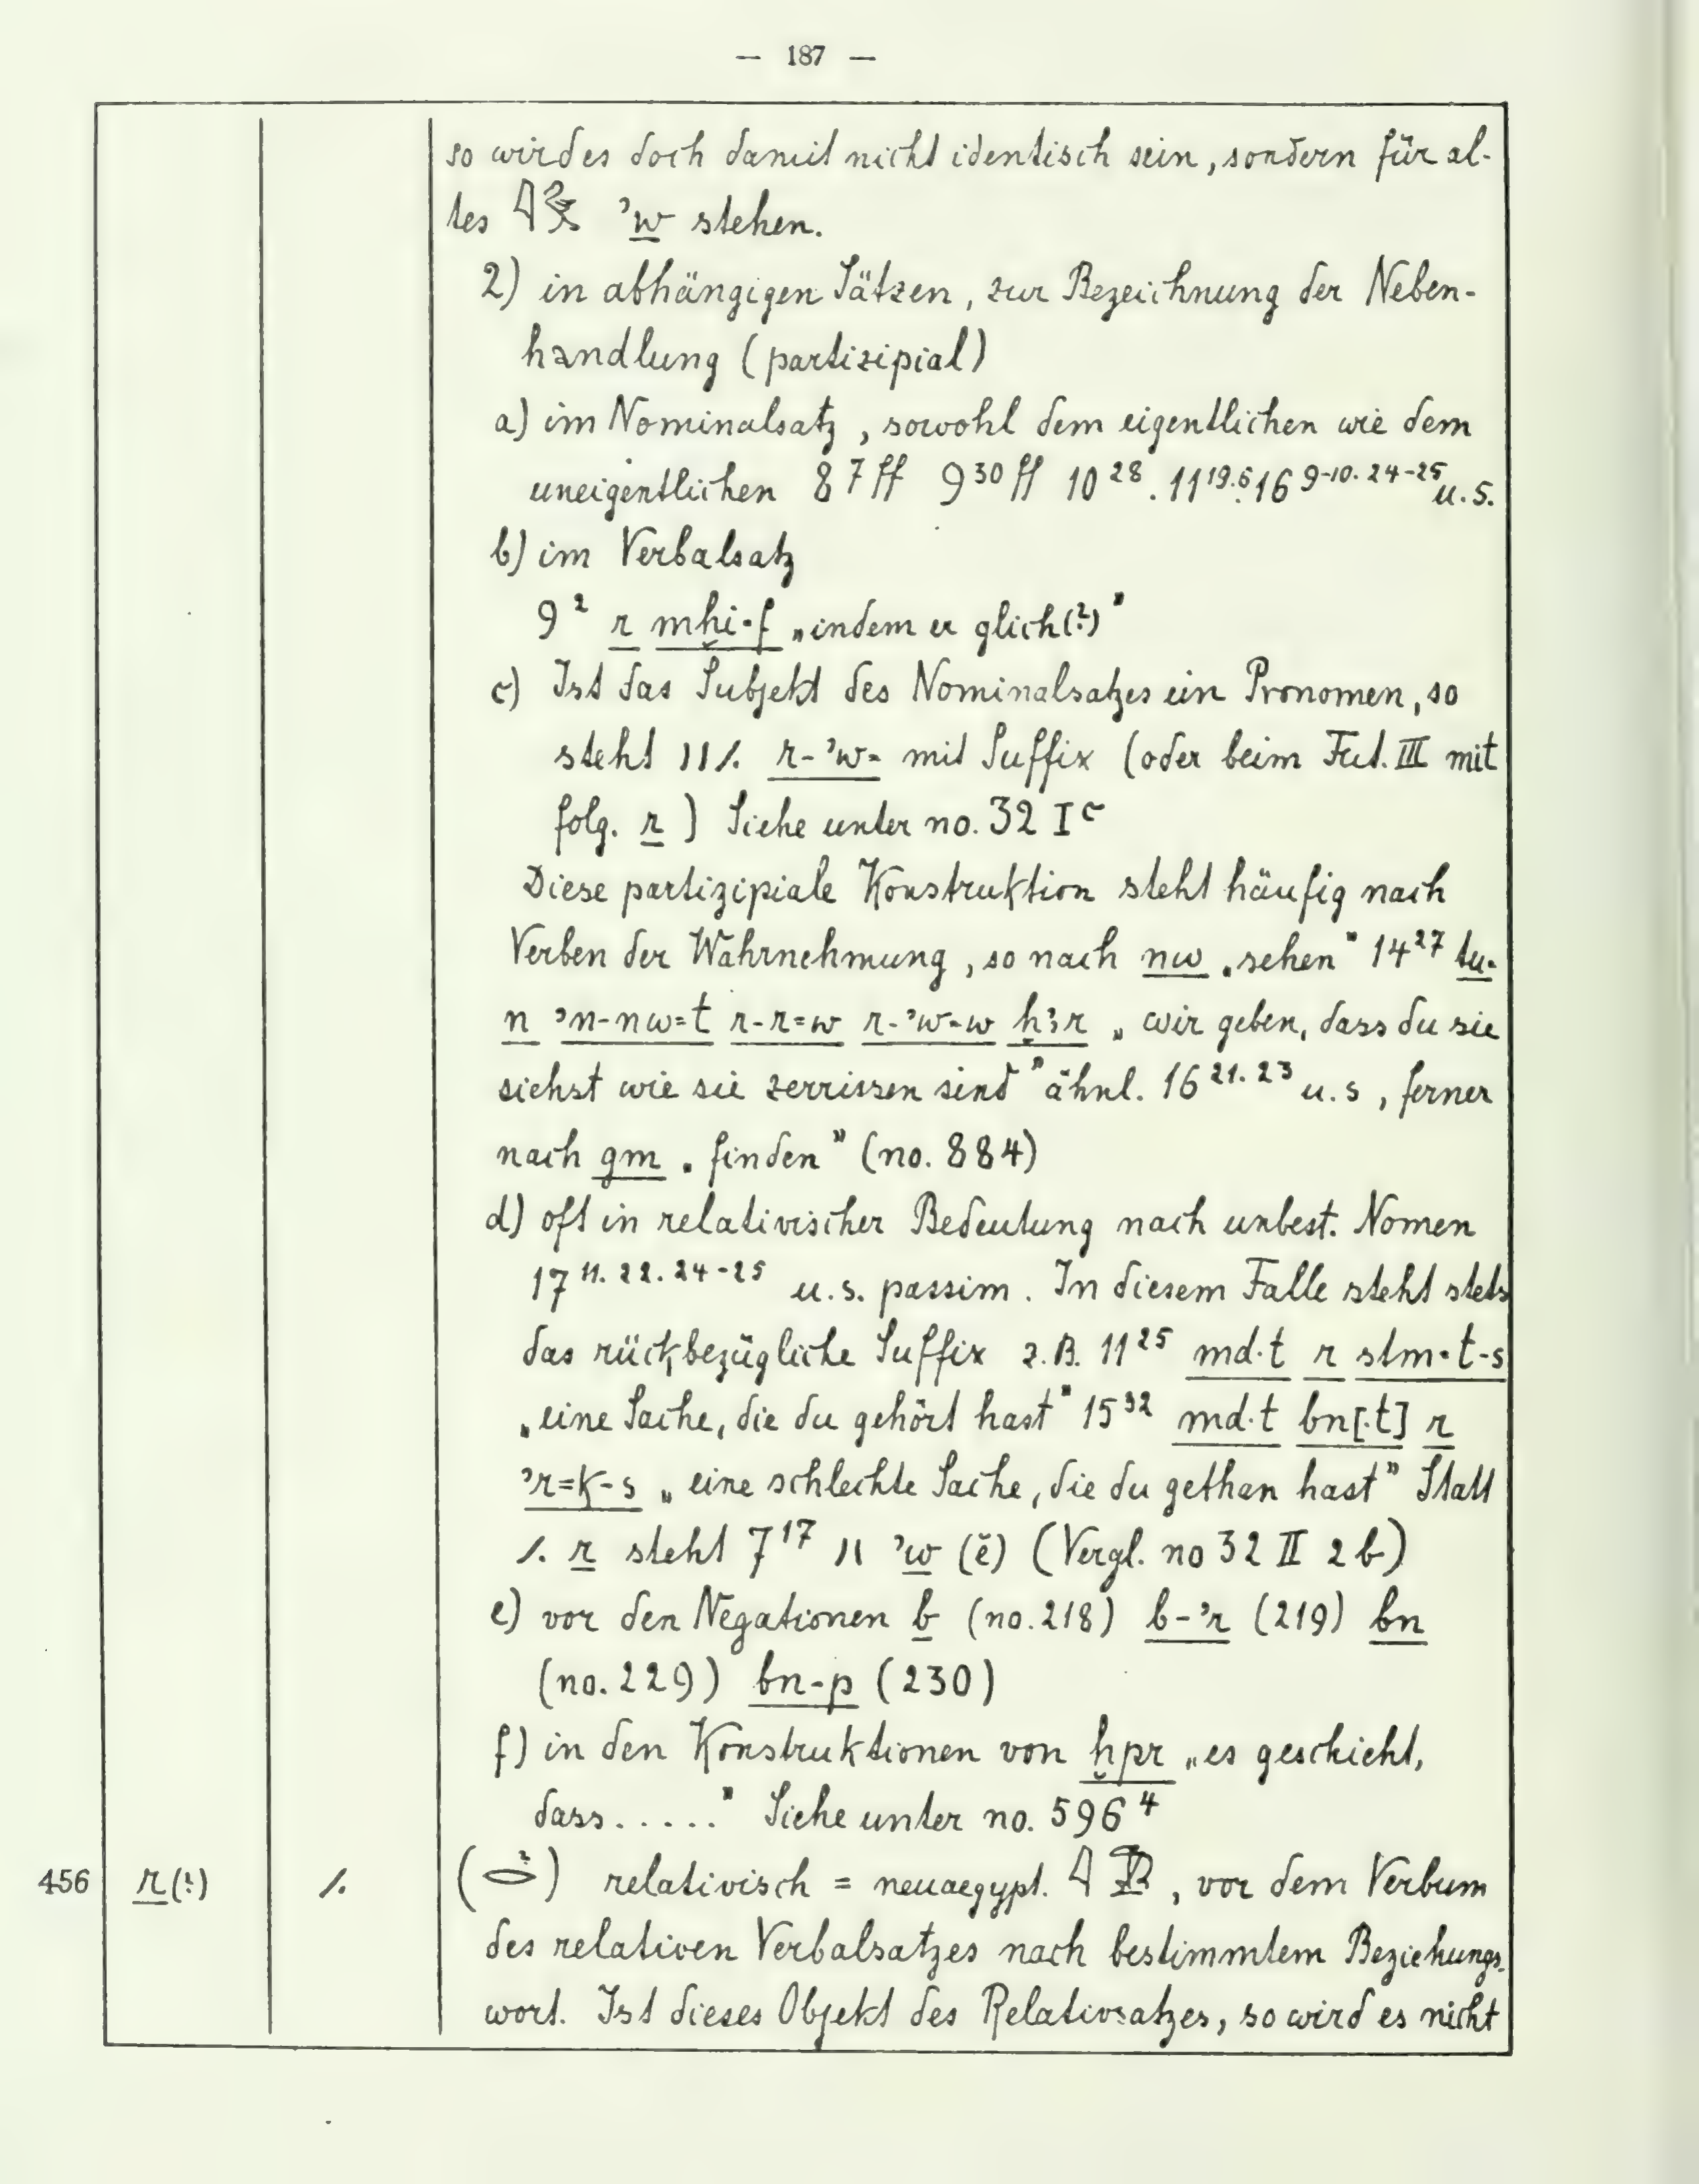 — 187 —
so wird es doch damit nicht identisch sein, sondern für al-
tes 𓇋𓅱 ’w stehen.
2) in abhängigen Sätzen, zur Bezeichnung der Neben-
handlung (partizipial)
a) im Nominalsatz, sowohl dem eigentlichen wie dem
uneigentlichen 8⁷ ff 9³⁰ ff 10²⁸. 11¹⁹·⁶· 16⁹⁻¹⁰·²⁴⁻²⁵ u. s.
b) im Verbalsatz
9² r mḫi·f „indem er glich(?)”
c) Ist das Subjekt des Nominalsatzes ein Pronomen, so
steht r-’w= mit Suffix (oder beim Fut. III mit
folg. r) Siehe unter no. 32 Iᶜ
Diese partizipiale Konstruktion steht häufig nach
Verben der Wahrnehmung, so nach nw „sehen” 14²⁷ tu-
n ’n-nw=t r-r=w r-’w=w ḫꜣr „wir geben, dass du sie
siehst wie sie zerrissen sind” ähnl. 16²¹·²³ u. s, ferner
nach gm „finden” (no. 884)
d) oft in relativischer Bedeutung nach unbest. Nomen
17¹¹·²²·²⁴⁻²⁵ u. s. passim. In diesem Falle steht stets
das rückbezügliche Suffix z. B. 11²⁵ md·t r stm·t-s
„eine Sache, die du gehört hast” 15³² md·t bn[·t] r
’r=k-s „eine schlechte Sache, die du gethan hast” Statt
r steht 7¹⁷ ’w (ĕ) (Vergl. no 32 II 2 b)
e) vor den Negationen b (no. 218) b-’r (219) bn
(no. 229) bn-p (230)
f) in den Konstruktionen von ḫpr „es geschieht,
dass.....” Siehe unter no. 596⁴
456 r(?) (𓂋?) relativisch = neuaegypt. , vor dem Verbum
des relativen Verbalsatzes nach bestimmtem Beziehungs-
wort. Ist dieses Objekt des Relativsatzes, so wird es nicht